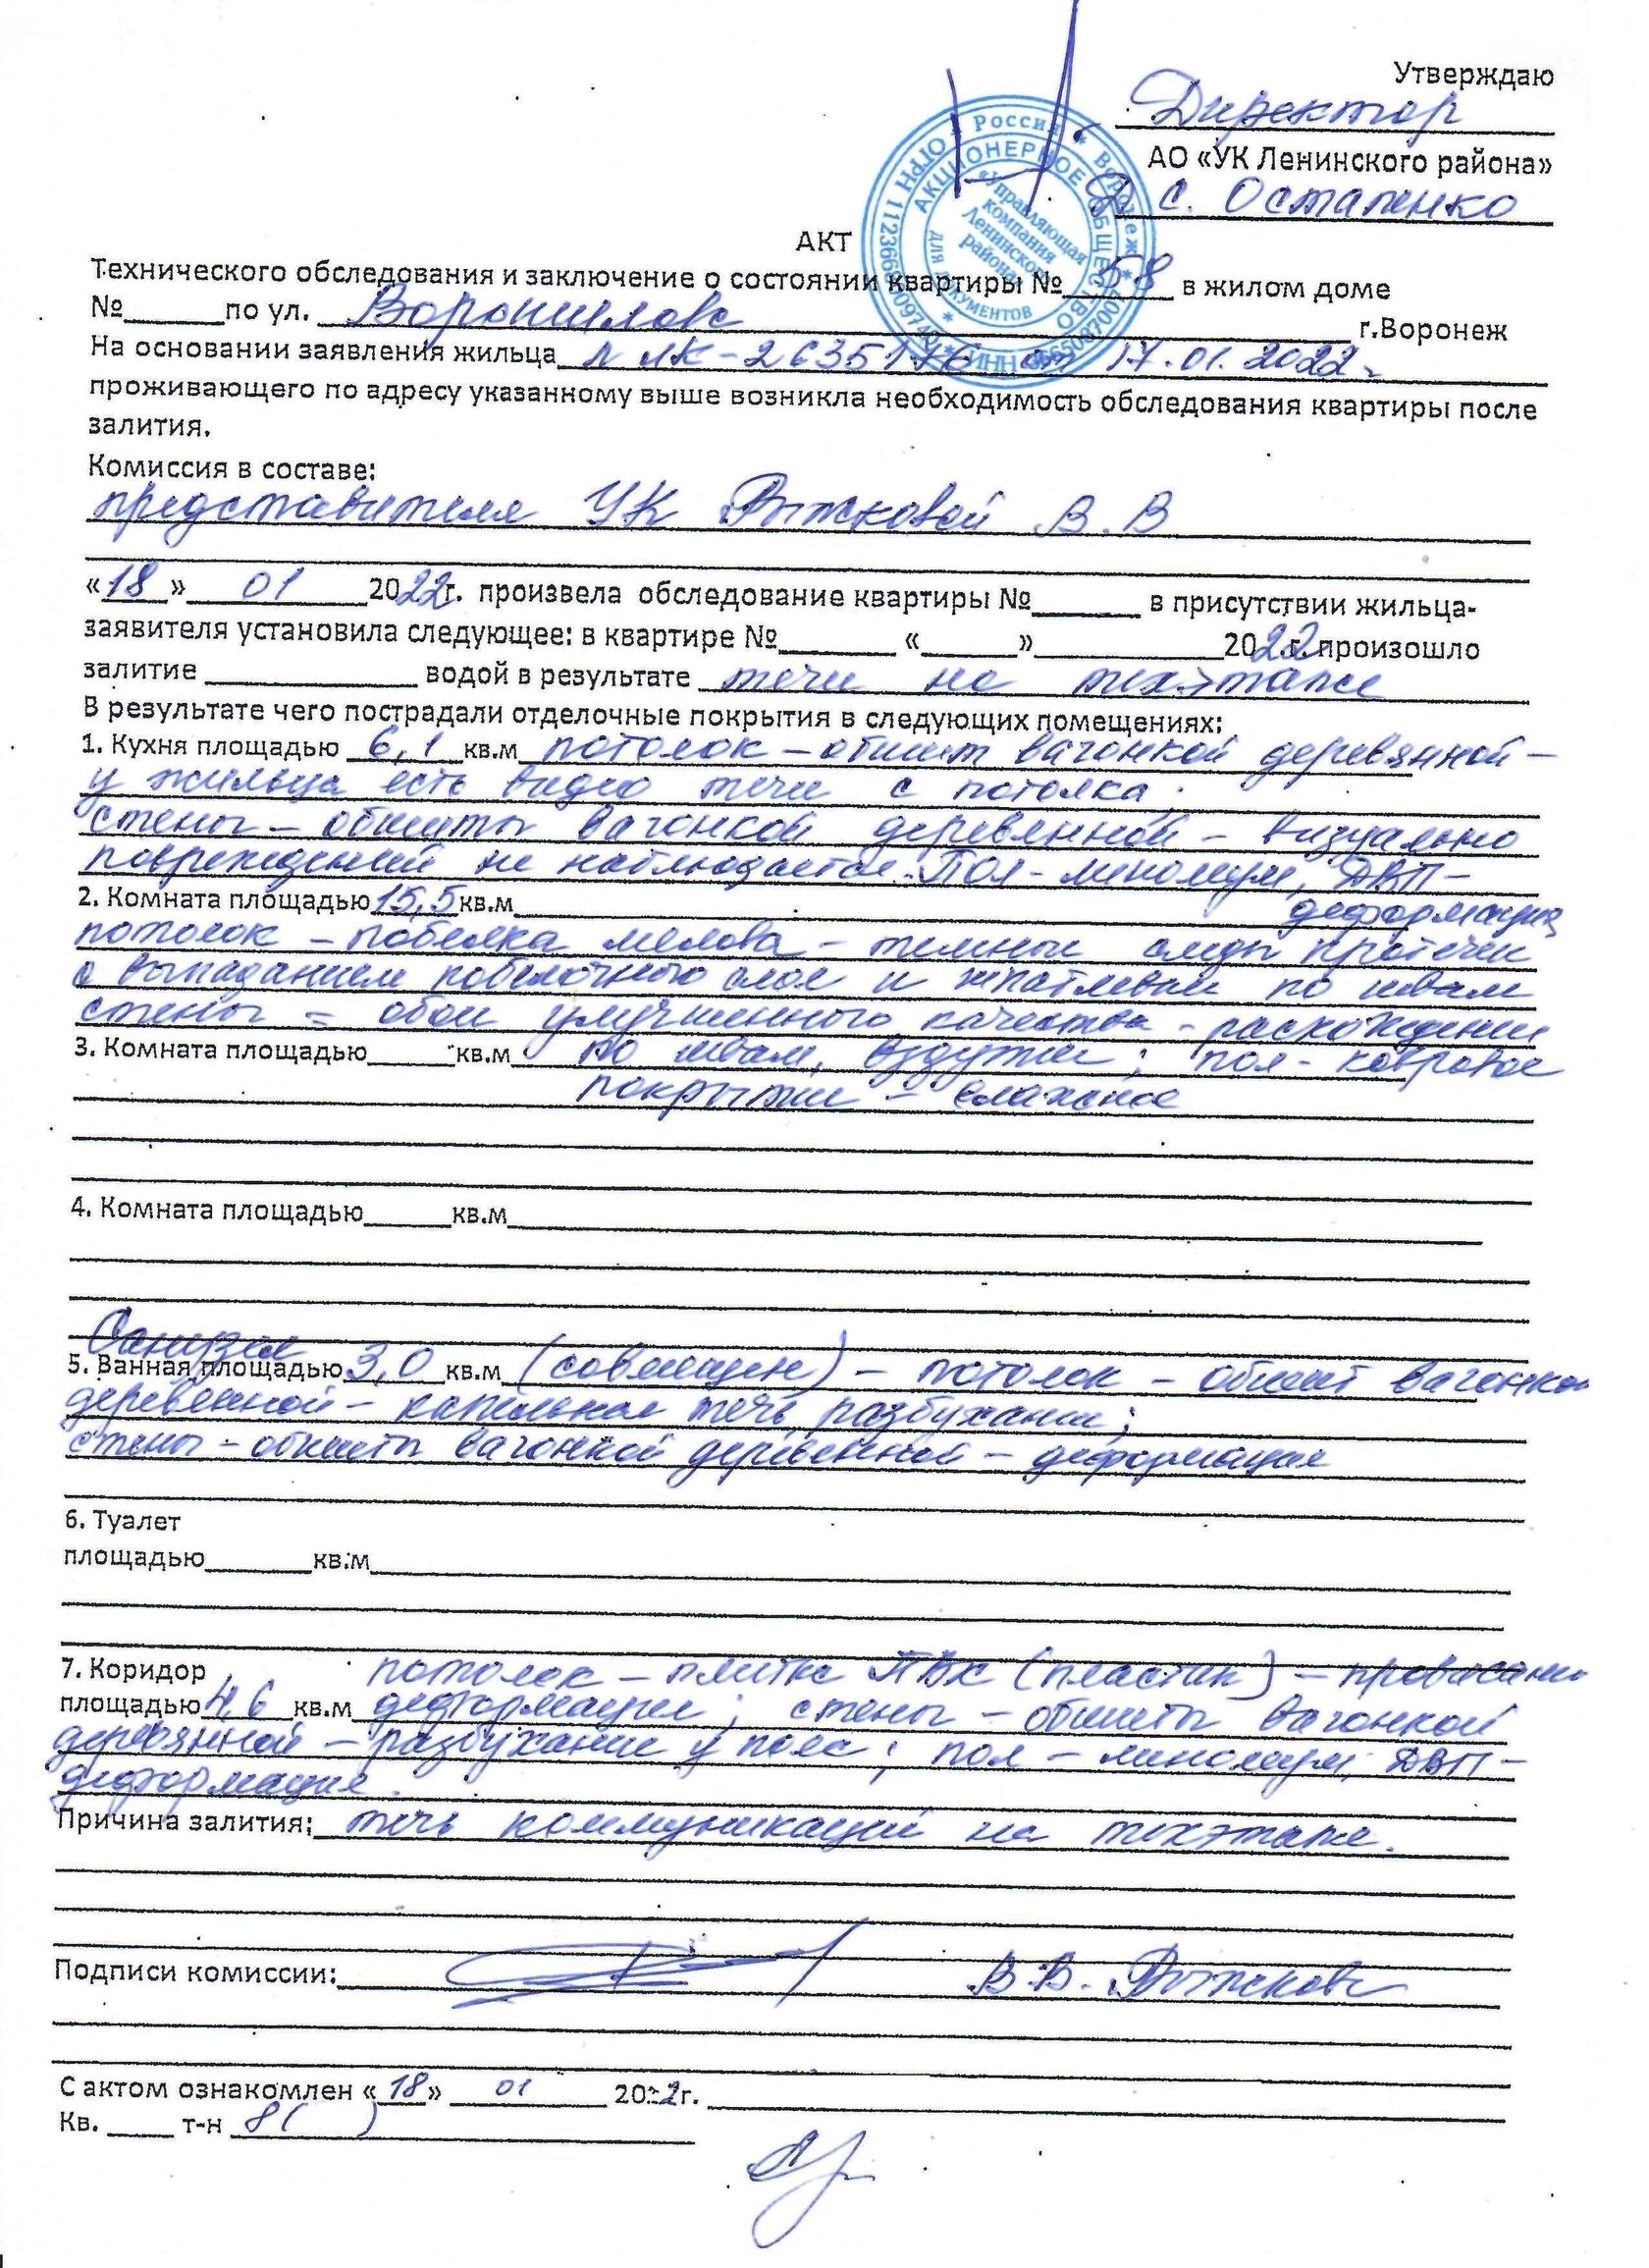 Утверждаю
Директор
АО «УК Ленинского района»
Д. С. Остапенко
АКТ
Технического обследования и заключение о состоянии квартиры № 58 в жилом доме
№______по ул. Ворошилова г.Воронеж
На основании заявления жильца ЛК-2635176 от 17.01.2022г
проживающего по адресу указанному выше возникла необходимость обследования квартиры после
залития.
Комиссия в составе:
представителя УК Рыжковой В.В
«18» 01 2022г. произвела обследование квартиры №_______ в присутствии жильца-
заявителя установила следующее: в квартире №_______ «______»____________2022г. произошло
залитие ______________ водой в результате течи на техэтаже
В результате чего пострадали отделочные покрытия в следующих помещениях:
1. Кухня площадью 6,1 кв.м потолок – обшит вагонкой деревянной –
у жильца есть видео течи с потолка.
стены – обшиты вагонкой деревянной – визуально
повреждений не наблюдается. Пол - линолеум, ДВП –
2. Комната площадью 15,5 кв.м деформация
потолок – побелка мелова – темные следы протечек
с выпадением побелочного слоя и шпатлевки по швам
стены – обои улучшенного качества - расхождение
3. Комната площадью______кв.м по швам, вздутие; пол - ковровое
покрытие – влажное
4. Комната площадью______кв.м
Санузел
5. Ванная площадью 3,0 кв.м (совмещен) – потолок – обшит вагонкой
деревянной – капельная течь разбухание;
стены – обшиты вагонкой деревянной – деформация
6. Туалет
площадью_______кв.м
7. Коридор потолок – плитка ПВХ (пластик) – провисание
площадью 4,6 кв.м деформация; стены – обшиты вагонкой
деревянной – разбухание у пола; пол – линолеум, ДВП –
деформация.
Причина залития: течь коммуникаций на техэтаже.
Подписи комиссии: В.В. Рыжкова
С актом ознакомлен «18» 01 2022г.
Кв. _____ т-н 8 ( )
Россия * Воронеж * ОГРН
АКЦИОНЕРНОЕ ОБЩЕСТВО
«Управляющая
компания
Ленинского
района»
для документов
ИНН